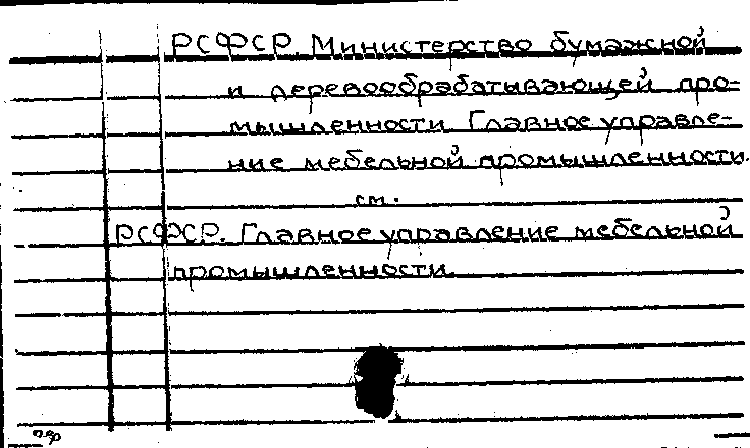 РСФСР. Министерство бумажной
и деревообрабатывающей про-
мышленности. Главное управле-
ние мебельной промышленности.
см.
РСФСР. Главное управление мебельной
промышленности.